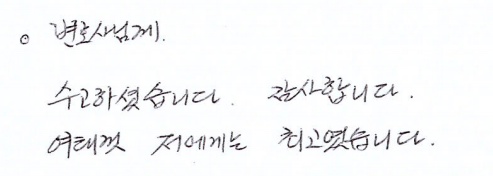 ○ 변호사님께.
수고하셨습니다. 감사합니다.
여태껏 저에게는 최고였습니다.